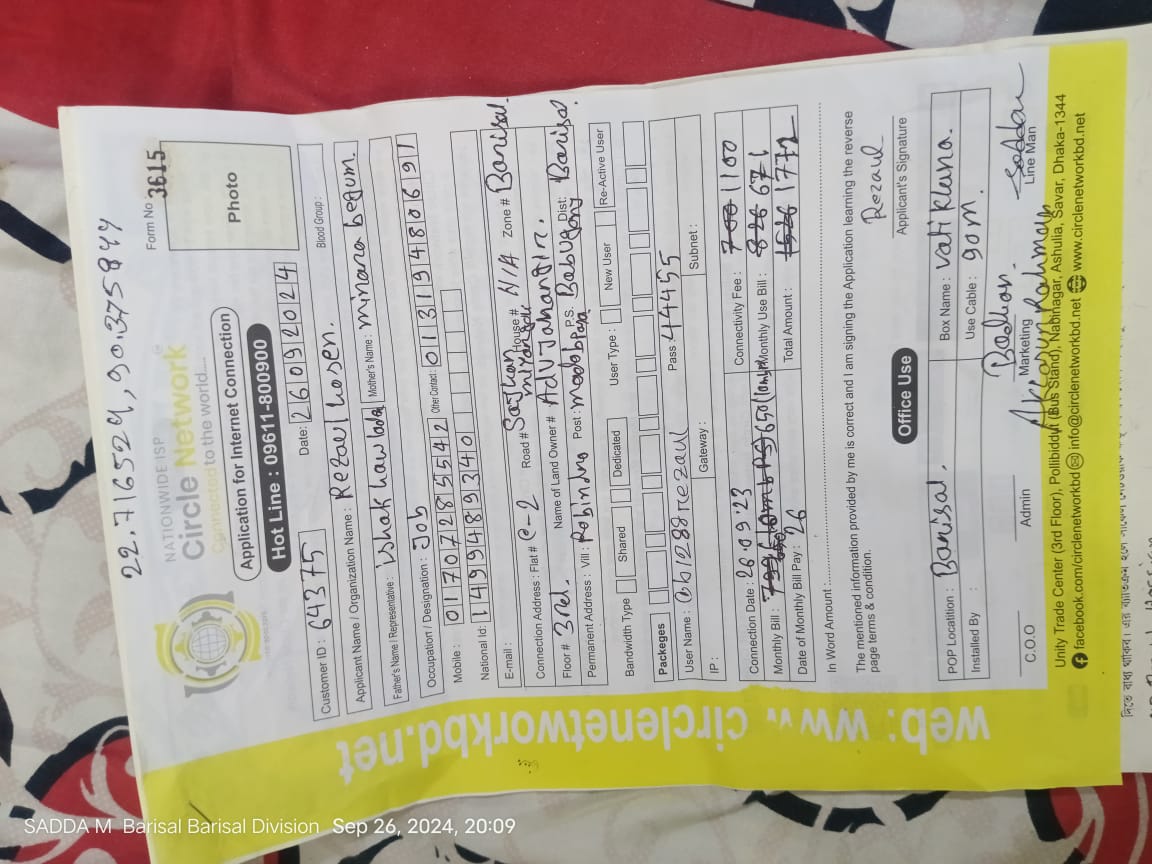 22.716529, 90.375844
NATIONWIDE ISP
Form No 3615
Circle Network
Connected to the world....
Application for Internet Connection
Photo
Hot Line : 09611-800900
Customer ID : 64375 Date: 26092024 Blood Group :
Applicant Name / Organization Name : Rezael hosen.
Father's Name / Representative : ishak hawlader Mother's Name : minara begum.
Occupation / Designation : Job
Mobile : 01707285542 Other Contact : 01319480691
National Id : 1499489340
E-mail :
Connection Address : Flat# C-2 Road # House# N/A Zone # Barisal.
Floor # 3rd. Name of Land Owner # Adv Jahangir.
Permanent Address : Vill : Post : P.S. Babugonj Dist: Barisal.
Bandwidth Type Shared Dedicated User Type : New User Re-Active User
Packeges
User Name : cb1288rezaul Pass : 44455
IP : Gateway : Subnet :
Connection Date : 26.09.23 Connectivity Fee : 700 1100
Monthly Bill : 650 Monthly Use Bill : 671
Date of Monthly Bill Pay : 26 Total Amount : 1771
In Word Amount
The mentioned information provided by me is correct and I am signing the Application learning the reverse
page terms & condition.
Rezaul
Applicant's Signature
Office Use
POP Locatition : Barisal. Box Name : Vatikhana.
Installed By : Use Cable : 90m.
C.O.O Admin Marketing Line Man
Unity Trade Center (3rd Floor), Pollibiddut (Bus Stand), Nabinagar, Ashulia, Savar, Dhaka-1344
facebook.com/circlenetworkbd info@circlenetworkbd.net www.circlenetworkbd.net
web: www.circlenetworkbd.net
SADDA M Barisal Barisal Division Sep 26, 2024, 20:09